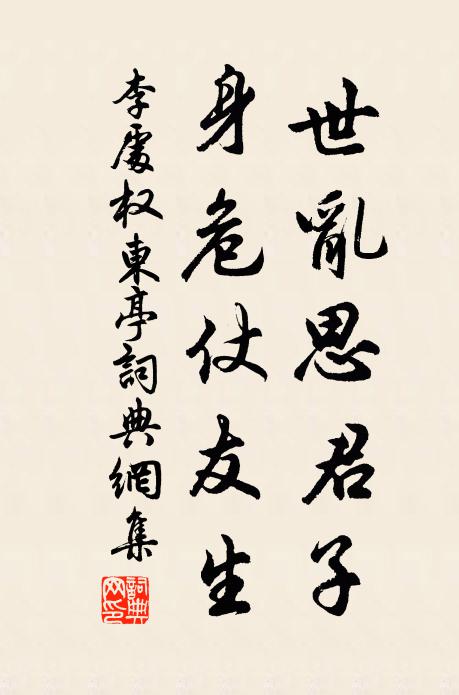 世亂思君子
身危仗友生
李處权東亭詞典網集
詞典网印